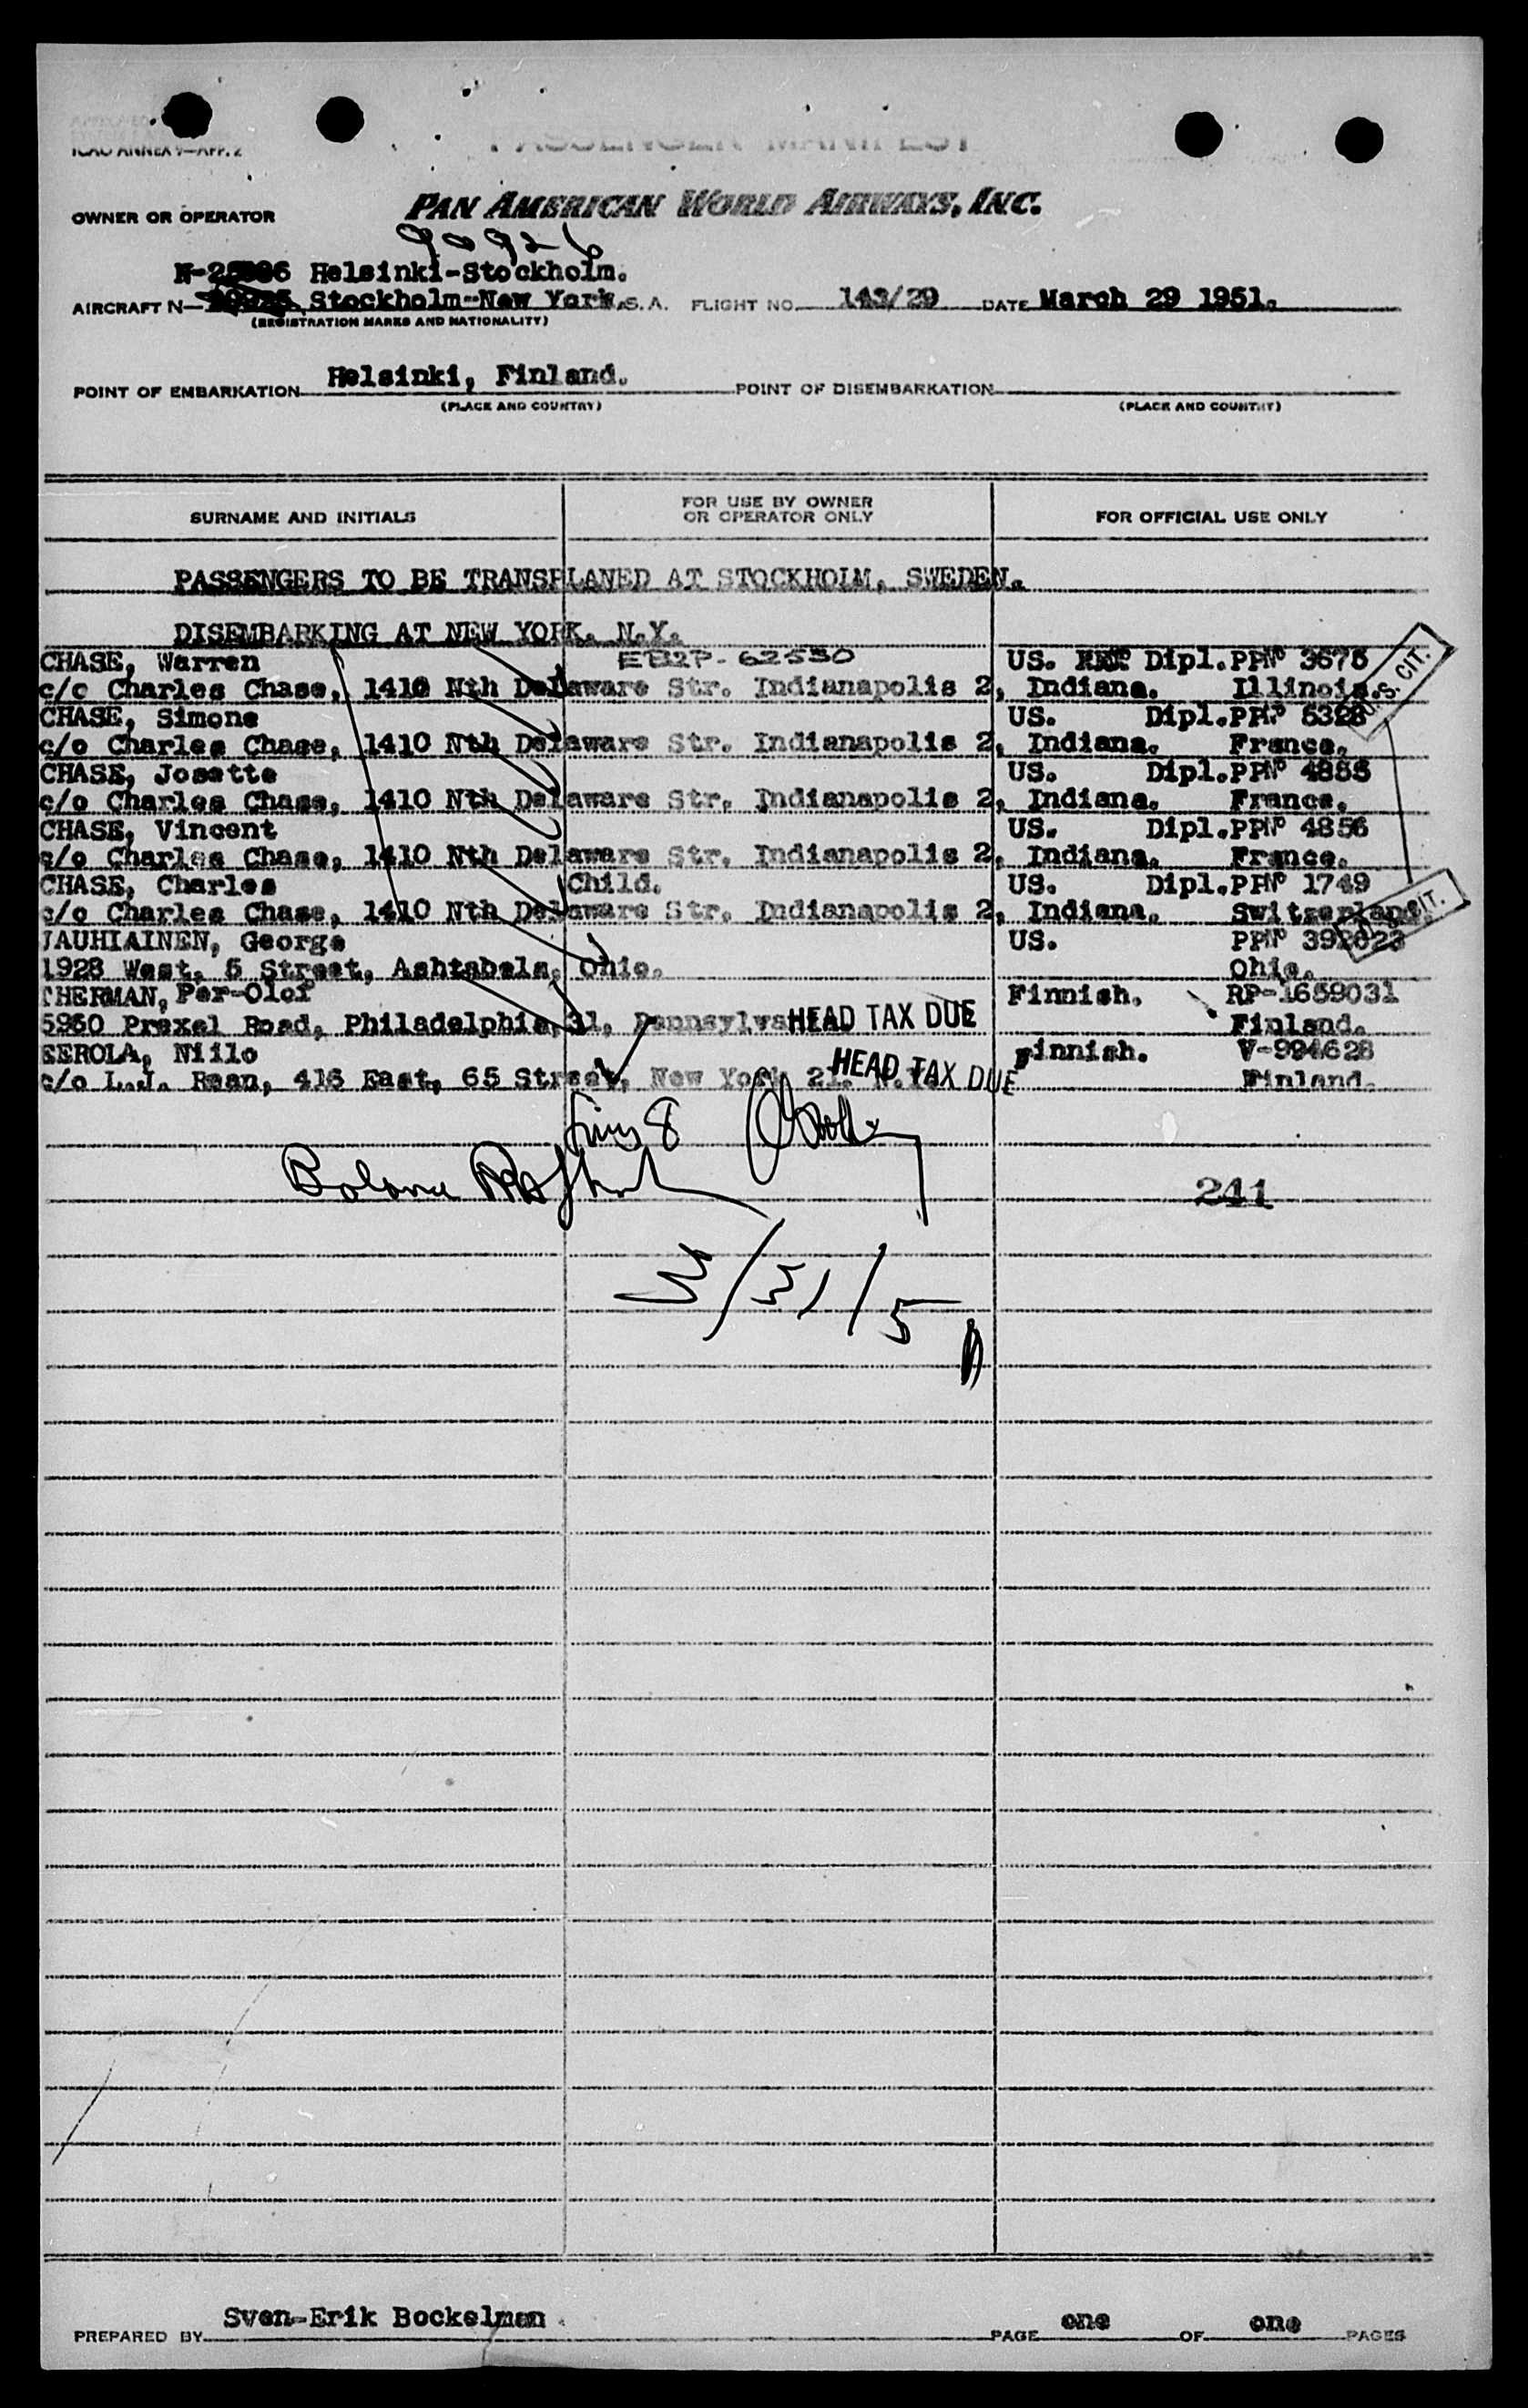 ICAO ANNEX 9—APP. 2
PASSENGER MANIFEST
OWNER OR OPERATOR PAN AMERICAN WORLD AIRWAYS, INC.
90926
Helsinki-Stockholm.
AIRCRAFT N— Stockholm-New York. S. A. FLIGHT NO. 143/29 DATE March 29 1951.
(REGISTRATION MARKS AND NATIONALITY)
POINT OF EMBARKATION Helsinki, Finland. POINT OF DISEMBARKATION
(PLACE AND COUNTRY) (PLACE AND COUNTRY)
SURNAME AND INITIALS FOR USE BY OWNER OR OPERATOR ONLY FOR OFFICIAL USE ONLY
PASSENGERS TO BE TRANSPLANED AT STOCKHOLM, SWEDEN.
DISEMBARKING AT NEW YORK. N.Y.
CHASE, Warren 62530 US. Dipl.PPNo 3675
c/o Charles Chase, 1410 Nth Delaware Str. Indianapolis 2, Indiana. Illinois.
U.S. CIT.
CHASE, Simone US. Dipl.PPNo 5328
c/o Charles Chase, 1410 Nth Delaware Str. Indianapolis 2, Indiana. France.
CHASE, Josette US. Dipl.PPNo 4855
c/o Charles Chase, 1410 Nth Delaware Str. Indianapolis 2, Indiana. France.
CHASE, Vincent US. Dipl.PPNo 4856
c/o Charles Chase, 1410 Nth Delaware Str. Indianapolis 2, Indiana. France.
CHASE, Charles Child. US. Dipl.PPNo 1749
c/o Charles Chase, 1410 Nth Delaware Str. Indianapolis 2, Indiana. Switzerland.
CIT.
JAUHIAINEN, George US. PPNo
1928 West, 5 Street, Ashtabela, Ohio. Ohio.
THERMAN, Per-Olof Finnish. RP-1659031
Road, Philadelphia, 31, Pennsylvania HEAD TAX DUE Finland.
EEROLA, Niilo Finnish. V-994628
c/o 416 East, 65 Street, New York 21. N.Y. HEAD TAX DUE Finland.
8
241
3/31/5
PREPARED BY Sven-Erik Bockelman PAGE one OF one PAGES